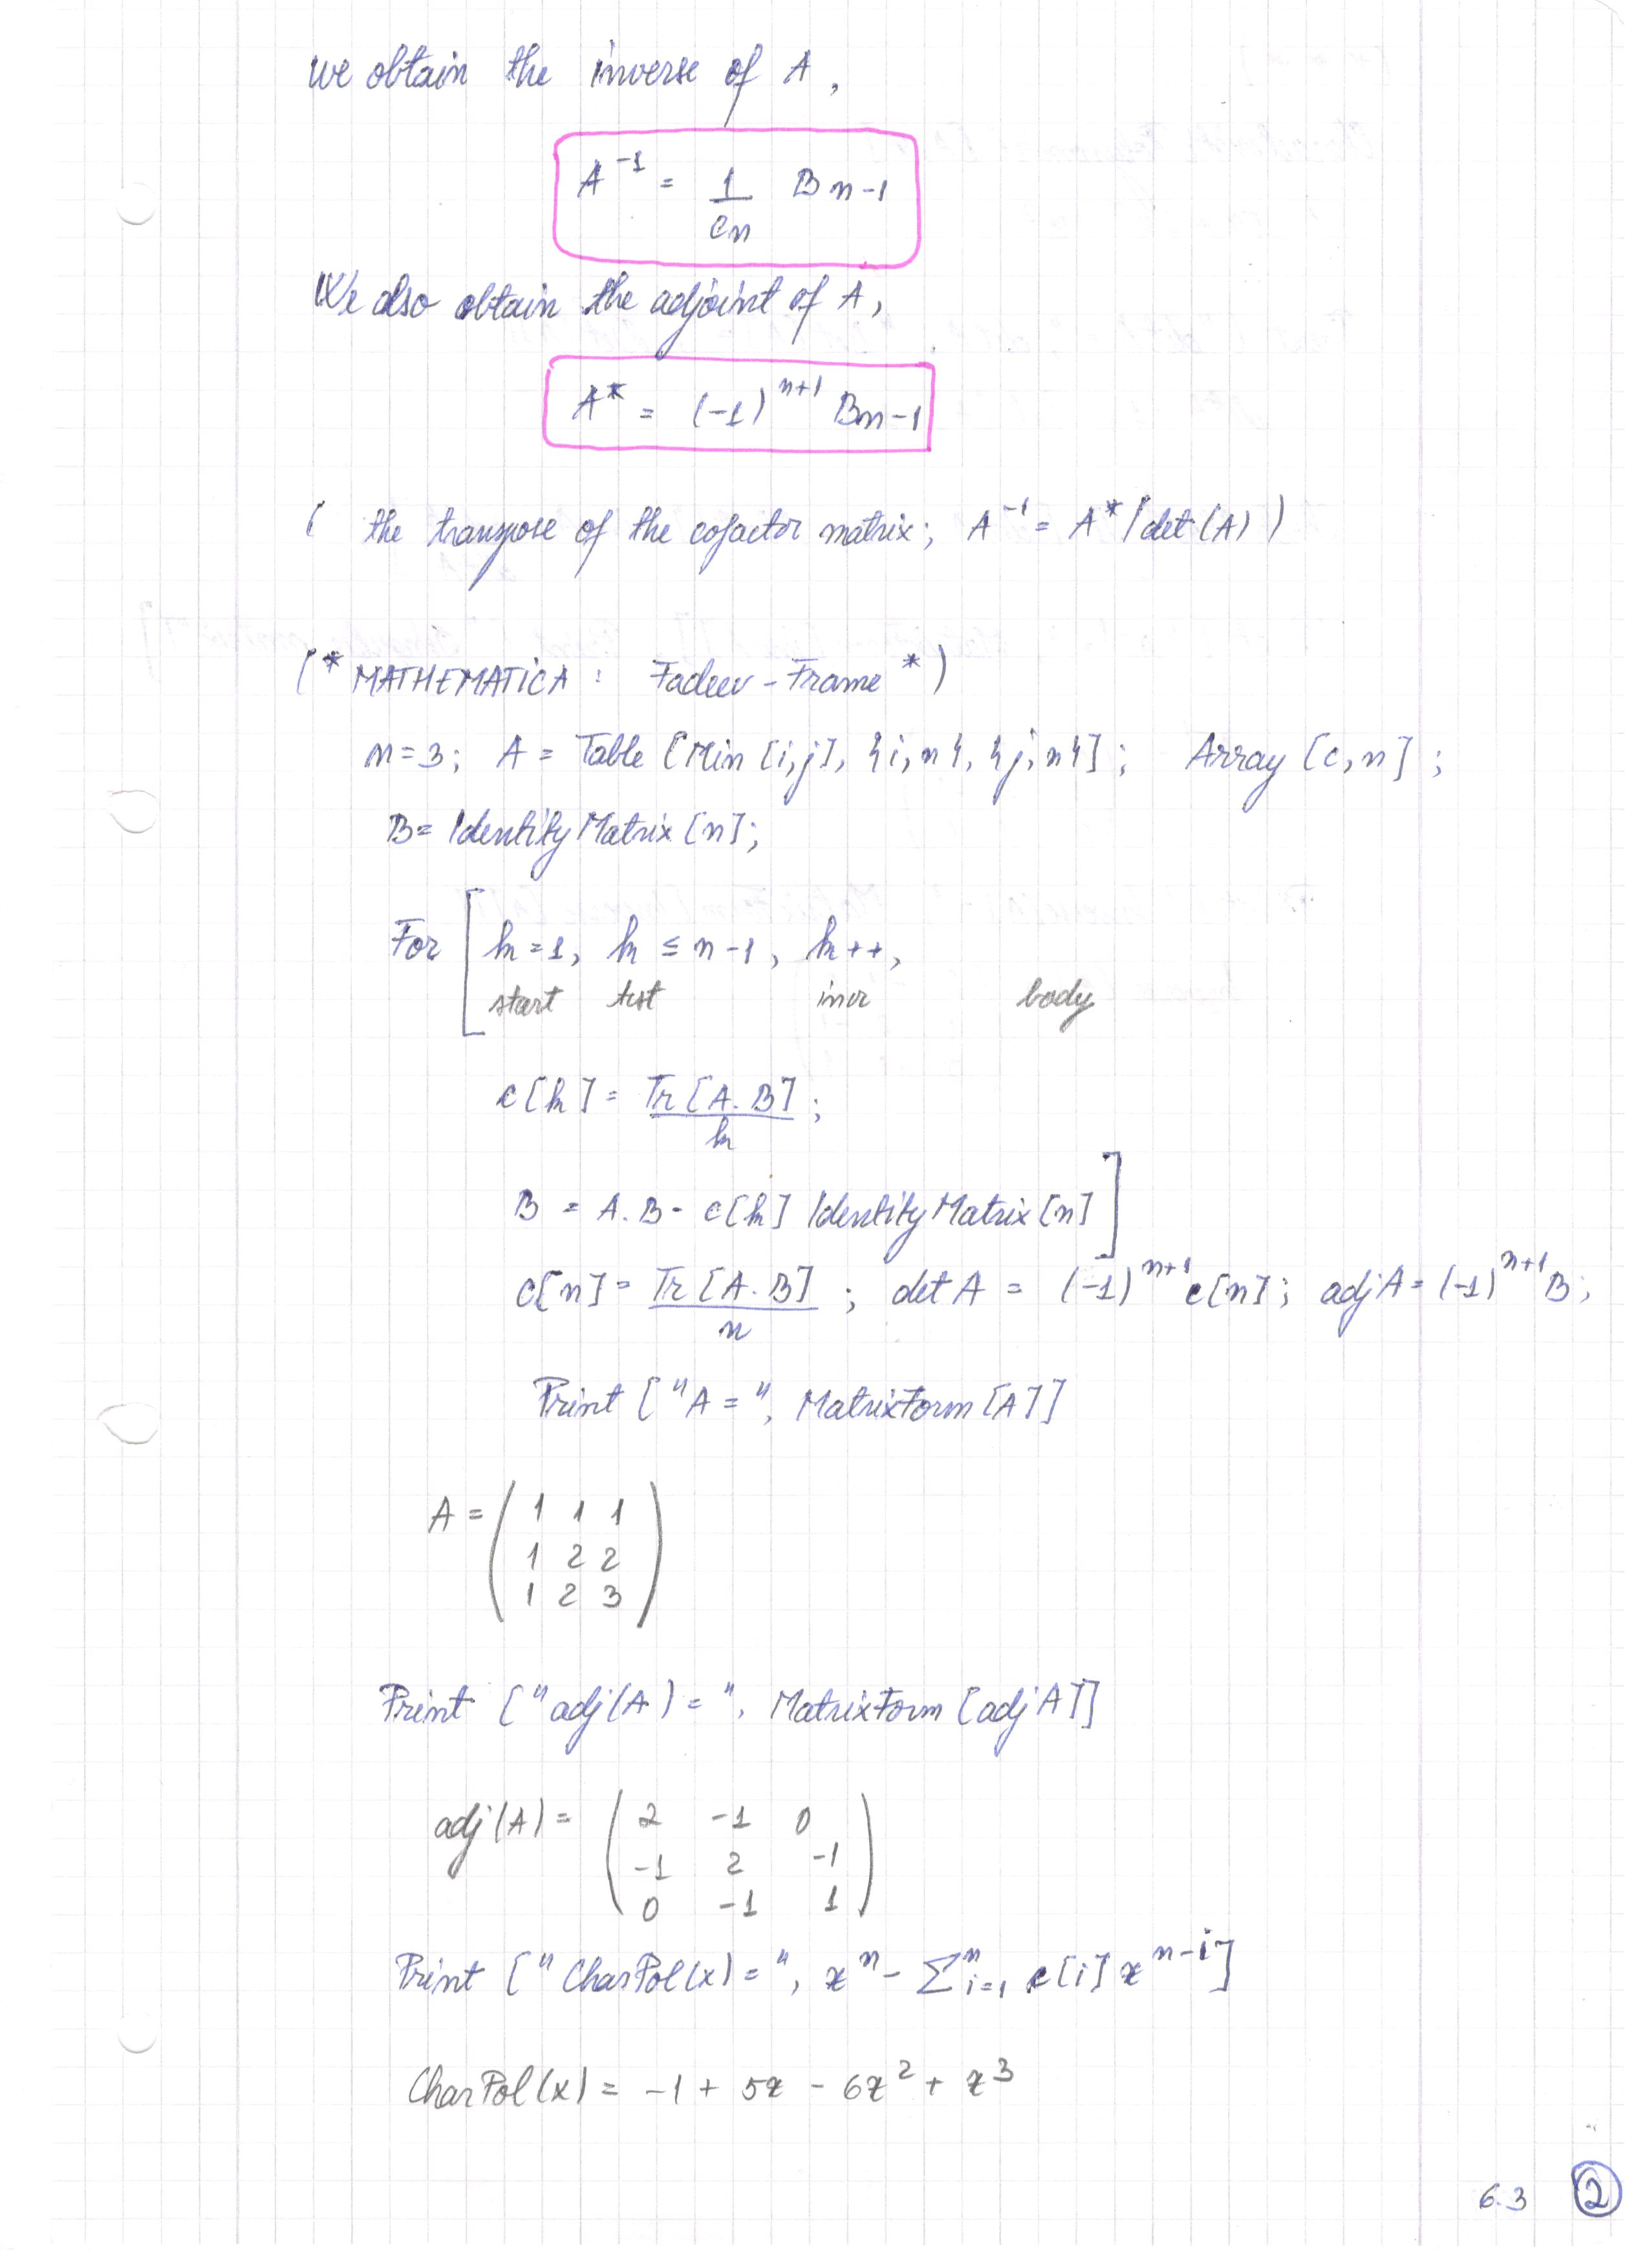 we obtain the inverse of A,
A^-1 = 1/cn Bn-1
We also obtain the adjoint of A,
A* = (-1)^n+1 Bn-1
( the transpose of the cofactor matrix; A^-1 = A*/det(A) )
(* MATHEMATICA : Fadeev - Frame *)
n=3; A = Table [Min [i,j], {i,n}, {j,n}]; Array [c,n];
B= IdentityMatrix [n];
For [ k=1, k ≤ n-1, k++,
start test incr body
c[k] = Tr [A.B] / k ;
B = A.B - c[k] IdentityMatrix [n] ]
c[n] = Tr [A.B] / n ; det A = (-1)^n+1 c[n]; adj A = (-1)^n+1 B;
Print ["A = ", MatrixForm [A]]
A = ( 1 1 1
1 2 2
1 2 3 )
Print ["adj(A) = ", MatrixForm [adj A]]
adj(A) = ( 2 -1 0
-1 2 -1
0 -1 1 )
Print ["CharPol(x) = ", x^n - Σ^n i=1 c[i] x^n-i]
CharPol(x) = -1 + 5x - 6x^2 + x^3
6.3 2